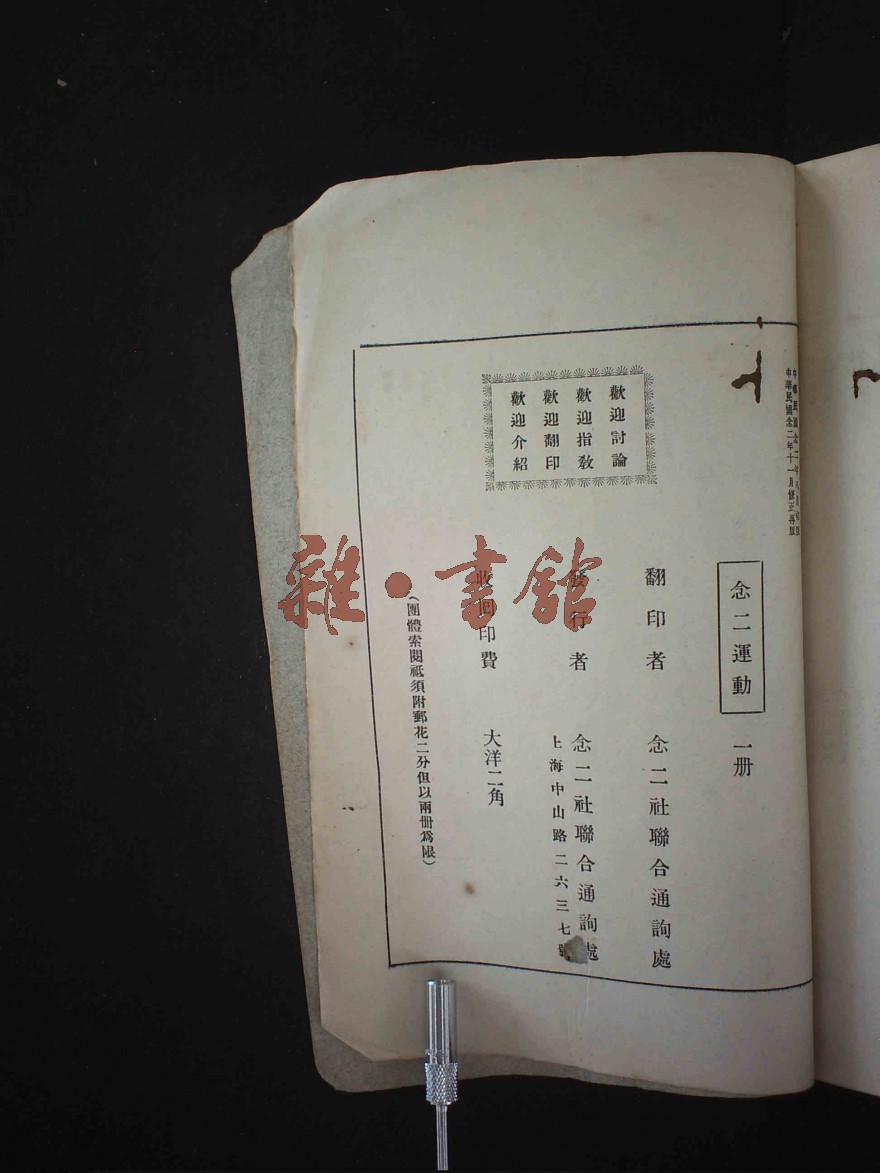 中華民國念二年八月初版
中華民國念二年十一月修正再版
念二運動 一册
翻印者 念二社聯合通詢處
發行者 念二社聯合通詢處
上海中山路二六三七號
收回印費 大洋二角
(團體索閱祗須附郵花二分但以兩册爲限)
歡迎討論
歡迎指教
歡迎翻印
歡迎介紹
雜·書館